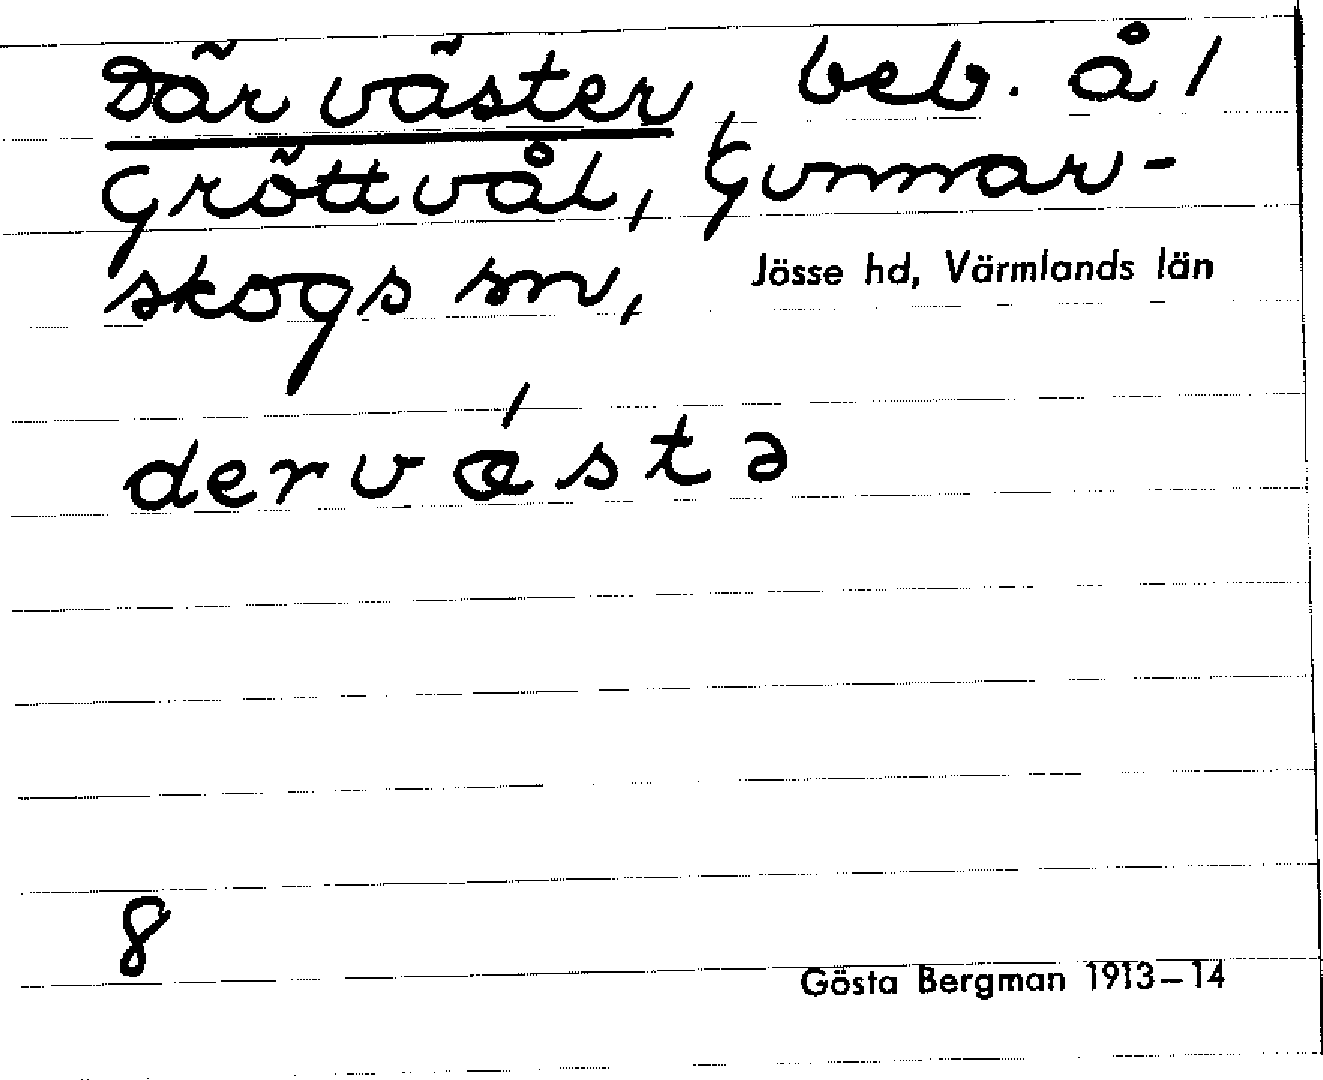 Där väster, beb. å /
Gröttvål, Gunnar-
skogs sn, Jössе hd, Värmlands län
dervástə
8
Gösta Bergman 1913–14